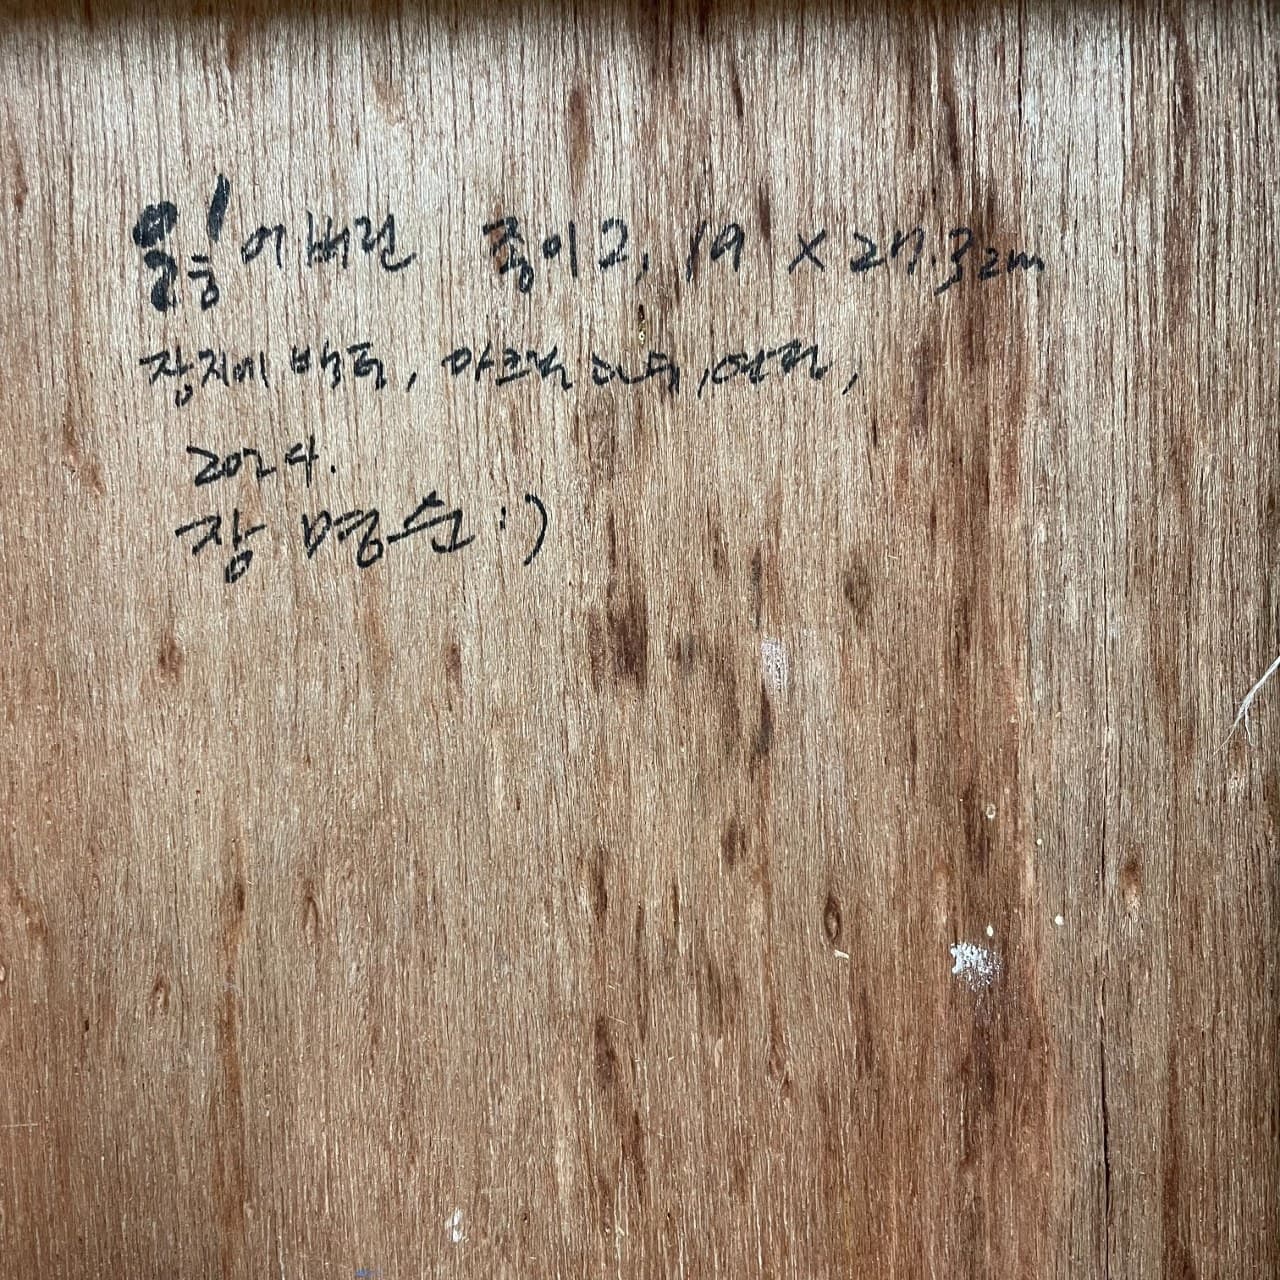 잃어버린 종이2, 19 × 27.3cm
장지에 백토, 아크릴, 연필,
2024.
장명순 :)